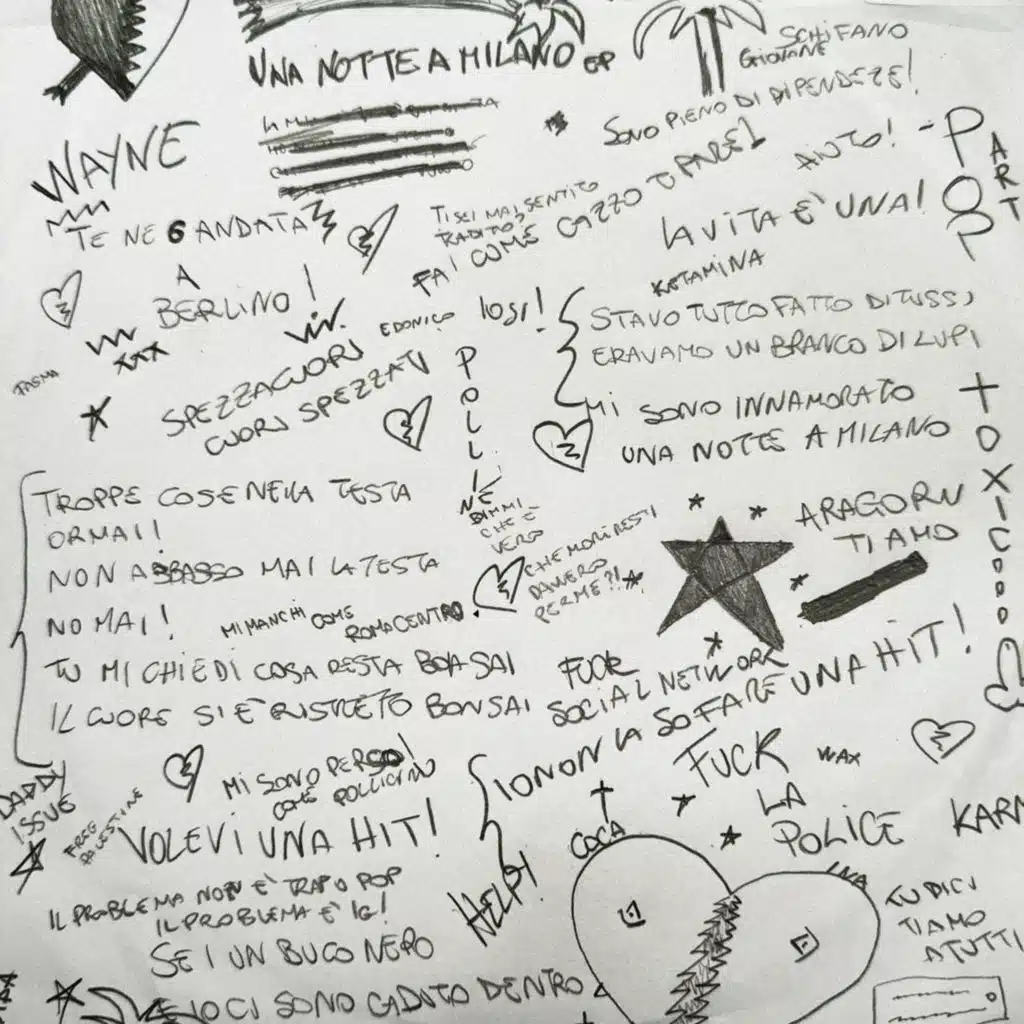 UNA NOTTE A MILANO EP
SCHIFANO
GIOVANE
SONO PIENO DI DIPENDEZE!
AIUTO!
- POP
ART
WAYNE
TE NE 6 ANDATA
A
BERLINO!
TI SEI MAI SENTITO
RADITO?
FAI COME CAZZO TI PARE!
LA VITA È UNA!
KETAMINA
VIV.
EDONICO
LOSI!
STAVO TUTTO FATTO DI TUSSI
ERAVAMO UN BRANCO DI LUPI
MI SONO INNAMORATO
UNA NOTTE A MILANO
XXX
TASMA
SPEZZACUORI
CUORI SPEZZATI
POLLINE
TOXIC
TROPPE COSE NELLA TESTA
ORMAI!
NON ABBASSO MAI LA TESTA
NO MAI!
MI MANCHI COME
ROMA CENTRO.
TU MI CHIEDI COSA RESTA BOH SAI
IL CUORE SI È RISTRETO BONSAI
DIMMI
CHE È
VERO
CHE MORIRESTI
DAVVERO
PER ME?!
ARAGORN
TI AMO
FUCK
SOCIAL NETWORK
IO NON LA SO FARE UNA HIT!
MI SONO PERSO!
COME POLLICINO
DADDY
ISSUE
FREE
PALESTINE
VOLEVI UNA HIT!
HELP!
FUCK
LA
POLICE
WAX
KARM
COCA
INA
IL PROBLEMA NON È TRAP O POP
IL PROBLEMA È IG!
SEI UN BUCO NERO
E IO CI SONO CADUTO DENTRO
TU DICI
TI AMO
A TUTTI